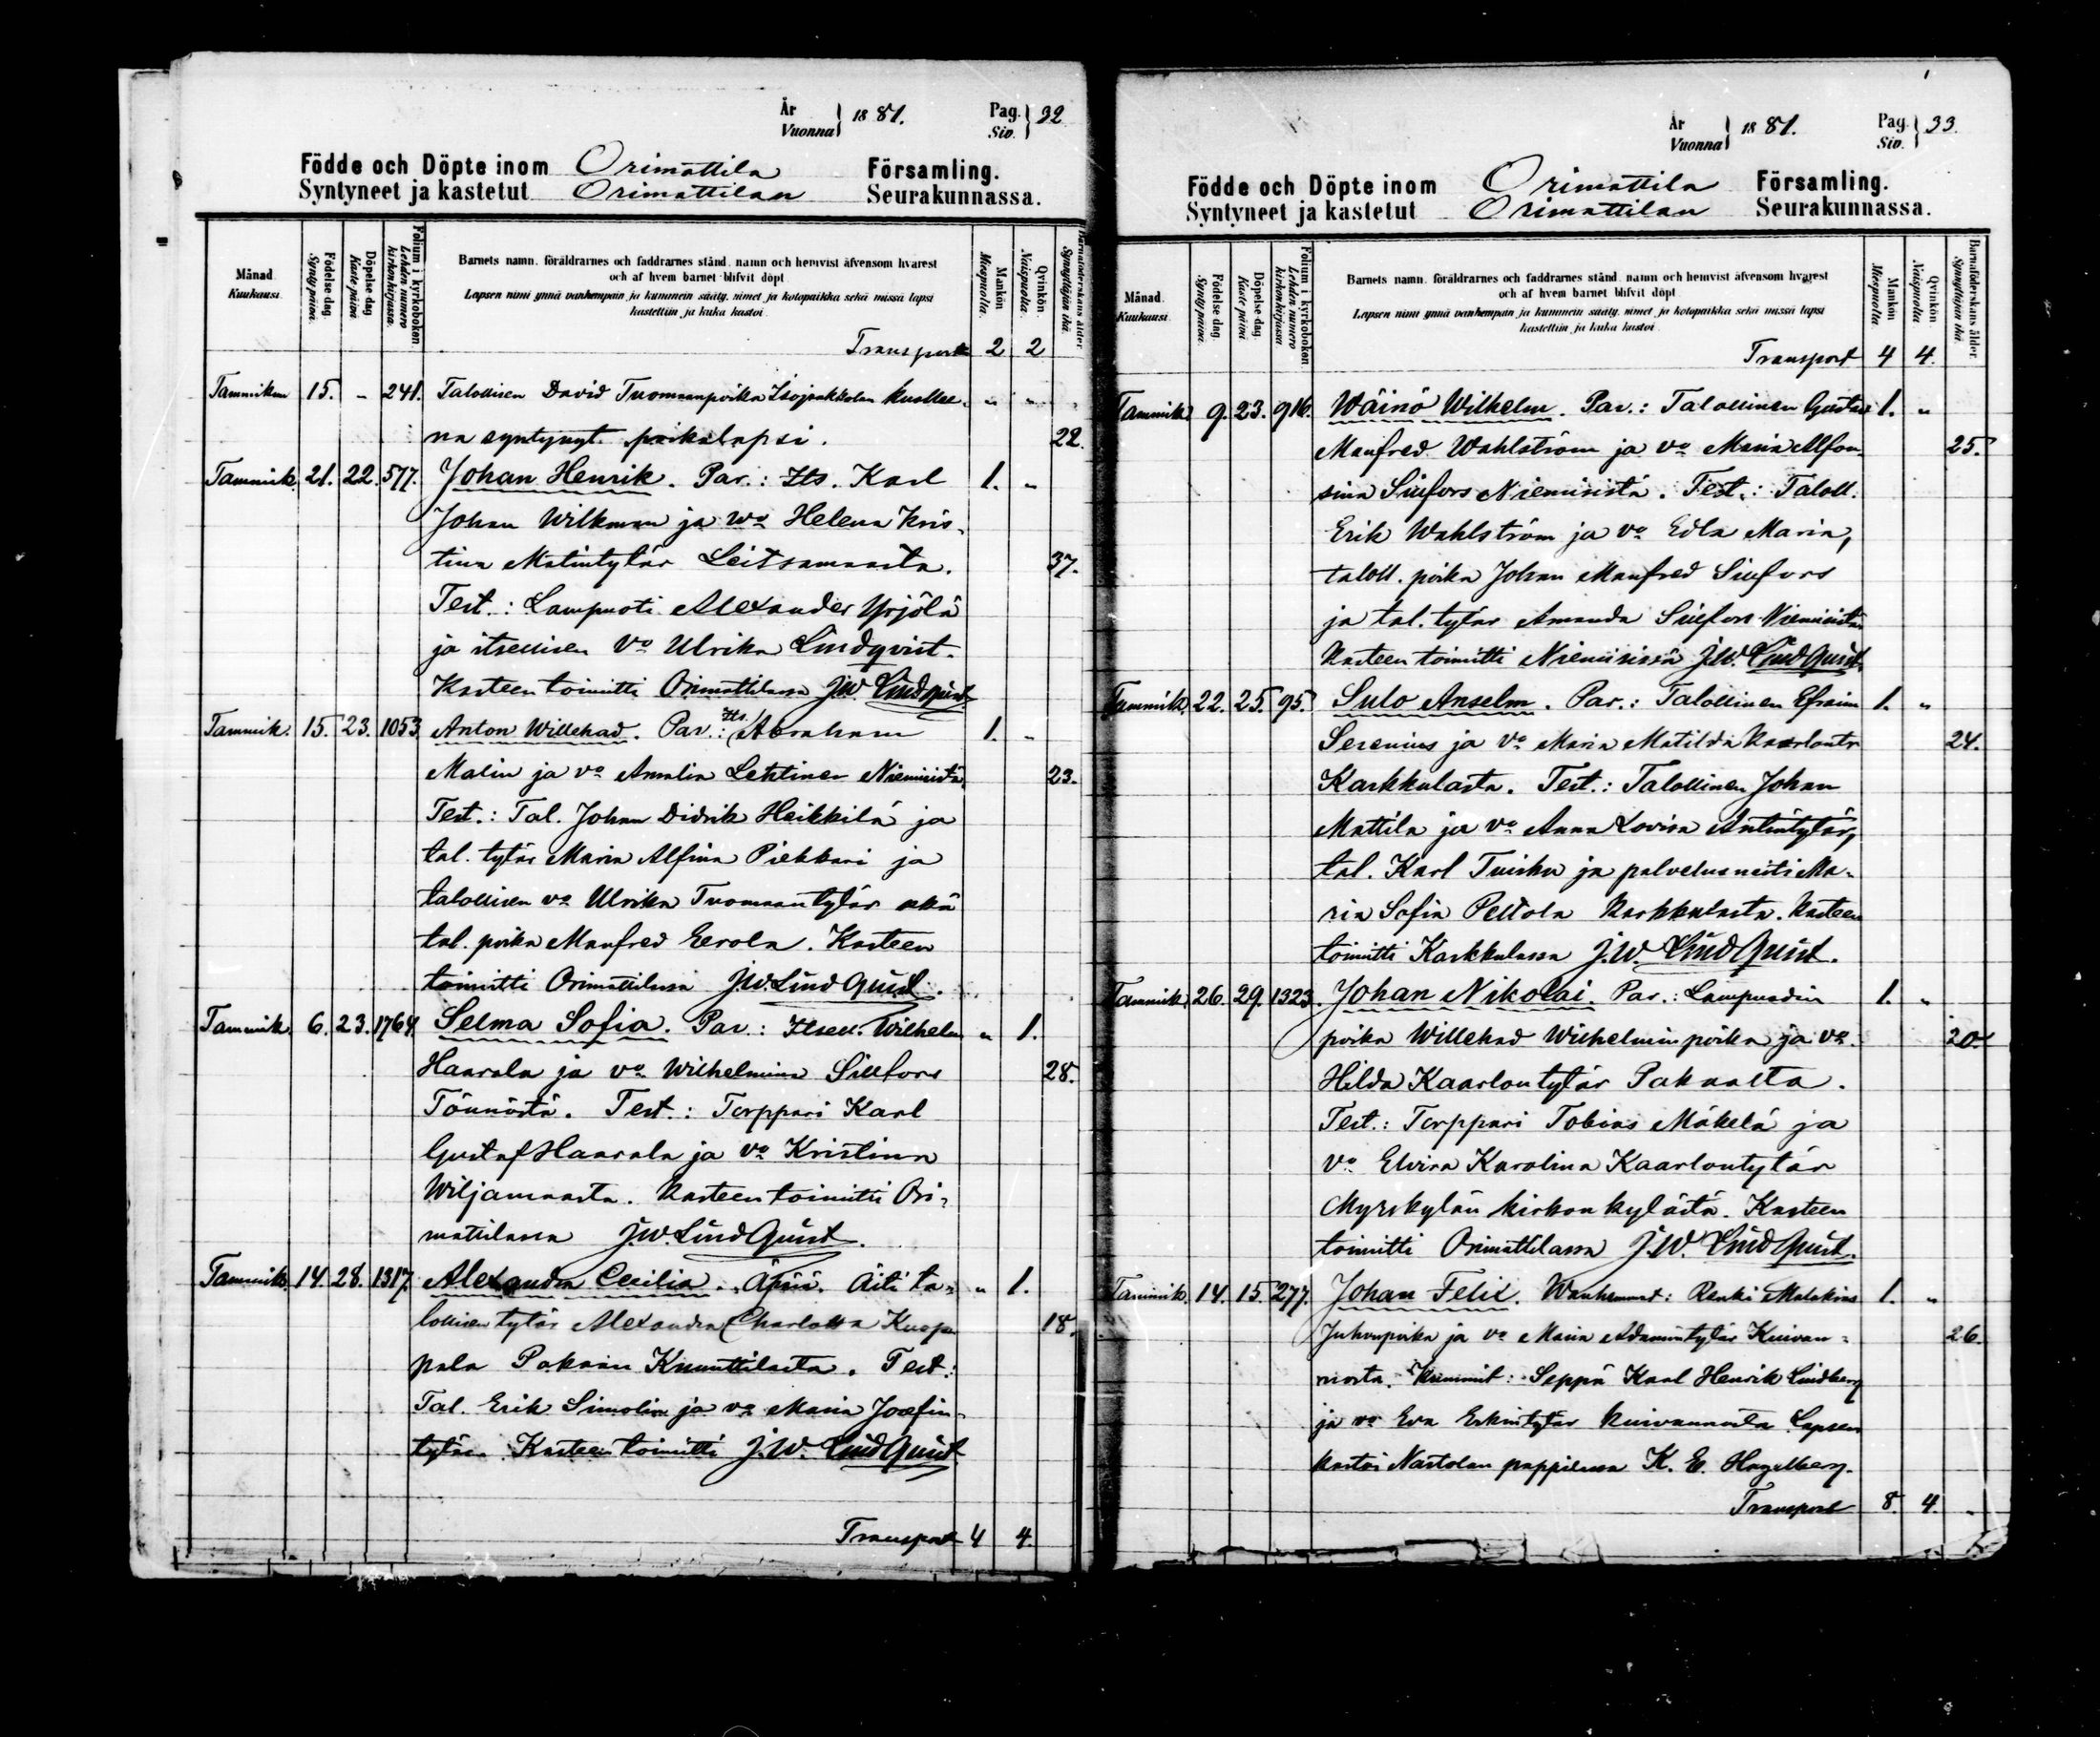 År
Vuonna 1881.
Pag.
Siv. 32
Födde och Döpte inom Orimattila Församling.
Syntyneet ja kastetut Orimattilan Seurakunnassa.
Månad. Kuukausi.
Födelse dag. Synty päivä.
Döpelse dag Kaste päivä
Folium i kyrkoboken Lehden numero kirkonkirjassa.
Barnets namn, föräldrarnes och faddrarnes stånd, namn och hemvist äfvensom hvarest
och af hvem barnet blifvit döpt
Lapsen nimi ynnä vanhempain ja kummein sääty, nimet ja kotopaikka sekä missä lapsi
kastettiin ja kuka kastoi.
Mankön Miespuolia.
Qvinkön. Naispuolia.
Barnaföderskans ålder Synnyttäjän ikä.
Transport 2 2
Tammikuu 15. - 241. Talollisen David Tuomaanpoika Isojaakkolan kuollee- " "
na syntynyt poikalapsi. 22
Tammik. 21. 22. 577. Johan Henrik. Par.: Its. Karl 1. "
Johan Wilkman ja wo Helena Kris-
tina Matintytär Leitsamaasta. 37.
Test.: Lampuoti Alexander Yrjölä
ja itsellisen Vo Ulrika Lindqvist.
Kasteen toimitti Orimattilassa J.W. Lindquist.
Tammik. 15. 23. 1053. Anton Willehad. Par.: Its. Abraham 1. "
Malin ja vo Amalia Lehtinen Niemiistä. 23.
Test.: Tal. Johan Didrik Heikkilä ja
tal. tytär Maria Alfina Piekkari ja
talollisen vo Ulrika Tuomaantytär sekä
tal. poika Manfred Eerola. Kasteen
toimitti Orimattilassa J.W. Lindquist.
Tammik. 6. 23. 1764. Selma Sofia. Par.: Itsell. Wilhelm " 1.
Haarala ja vo Wilhelmina Sillfors 28.
Tönnöstä. Test.: Torppari Karl
Gustaf Haarala ja vo Kristina
Wiljamaasta. Kasteen toimitti Ori-
mattilassa J.W. Lindquist.
Tammik. 14. 28. 1317. Alexandra Cecilia. Äpärä. Äiti ta- " 1.
lollisen tytär Alexandra Charlotta Knap- 18.
pala Pakaan Knuuttilasta. Test.:
Tal. Erik Simolin ja vo Maria Josefin-
tytär. Kasteen toimitti J.W. Lindquist
Transport 4 4.
År
Vuonna 1881.
Pag.
Siv. 33.
Födde och Döpte inom Orimattila Församling.
Syntyneet ja kastetut Orimattilan Seurakunnassa.
Månad. Kuukausi.
Födelse dag. Synty päivä.
Döpelse dag. Kaste päivä
Folium i kyrkoboken Lehden numero kirkonkirjassa
Barnets namn, föräldrarnes och faddrarnes stånd, namn och hemvist äfvensom hvarest
och af hvem barnet blifvit döpt
Lapsen nimi ynnä vanhempain ja kummein sääty, nimet ja kotopaikka sekä missä lapsi
kastettiin ja kuka kastoi.
Mankön Miespuolia
Qvinkön. Naispuolia.
Barnaföderskans ålder. Synnyttäjän ikä.
Transport 4 4.
Tammik. 9. 23. 916. Wäinö Wilhelm. Par.: Talollinen Gustaf 1. "
Manfred Wahlström ja vo Maria Alfon- 25.
sina Sillfors Niemisistä. Test.: Taloll.
Erik Wahlström ja vo Edla Maria,
taloll. poika Johan Manfred Sillfors
ja tal. tytär Amanda Sillfors Niemisistä.
Kasteen toimitti Niemisissä J.W. Lindquist.
Tammik. 22. 25. 95. Sulo Anselm. Par.: Talollinen Efraim 1. "
Serenius ja vo Maria Matilda Kaarlontr 24.
Karkkulasta. Test.: Talollinen Johan
Mattila ja vo Anna Lovisa Antintytär,
tal. Karl Tuisku ja palvelusneiti Ma-
ria Sofia Peltola Karkkulasta. Kasteen
toimitti Karkkulassa J.W. Lindquist.
Tammik. 26. 29. 1323. Johan Nikolai. Par.: Lampuodin 1. "
poika Willehad Wilhelmin poika ja vo 20.
Hilda Kaarlontytär Pakaasta.
Test.: Torppari Tobias Mäkelä ja
vo Elvira Karolina Kaarlontytär
Myrskylän kirkon kylästä. Kasteen
toimitti Orimattilassa J.W. Lindquist.
Tammik. 14. 15. 277. Johan Felix. Wanhemmat: Renki Malakias 1. "
Juhonpoika ja vo Maria Adamintytär Kuivan- 26.
nosta. Kummit: Seppä Karl Henrik Lindberg
ja vo Eva Erkintytär Kuivannosta Lapsen
kastoi Nastolan pappilassa K. E. Hagelberg.
Transport 8. 4.